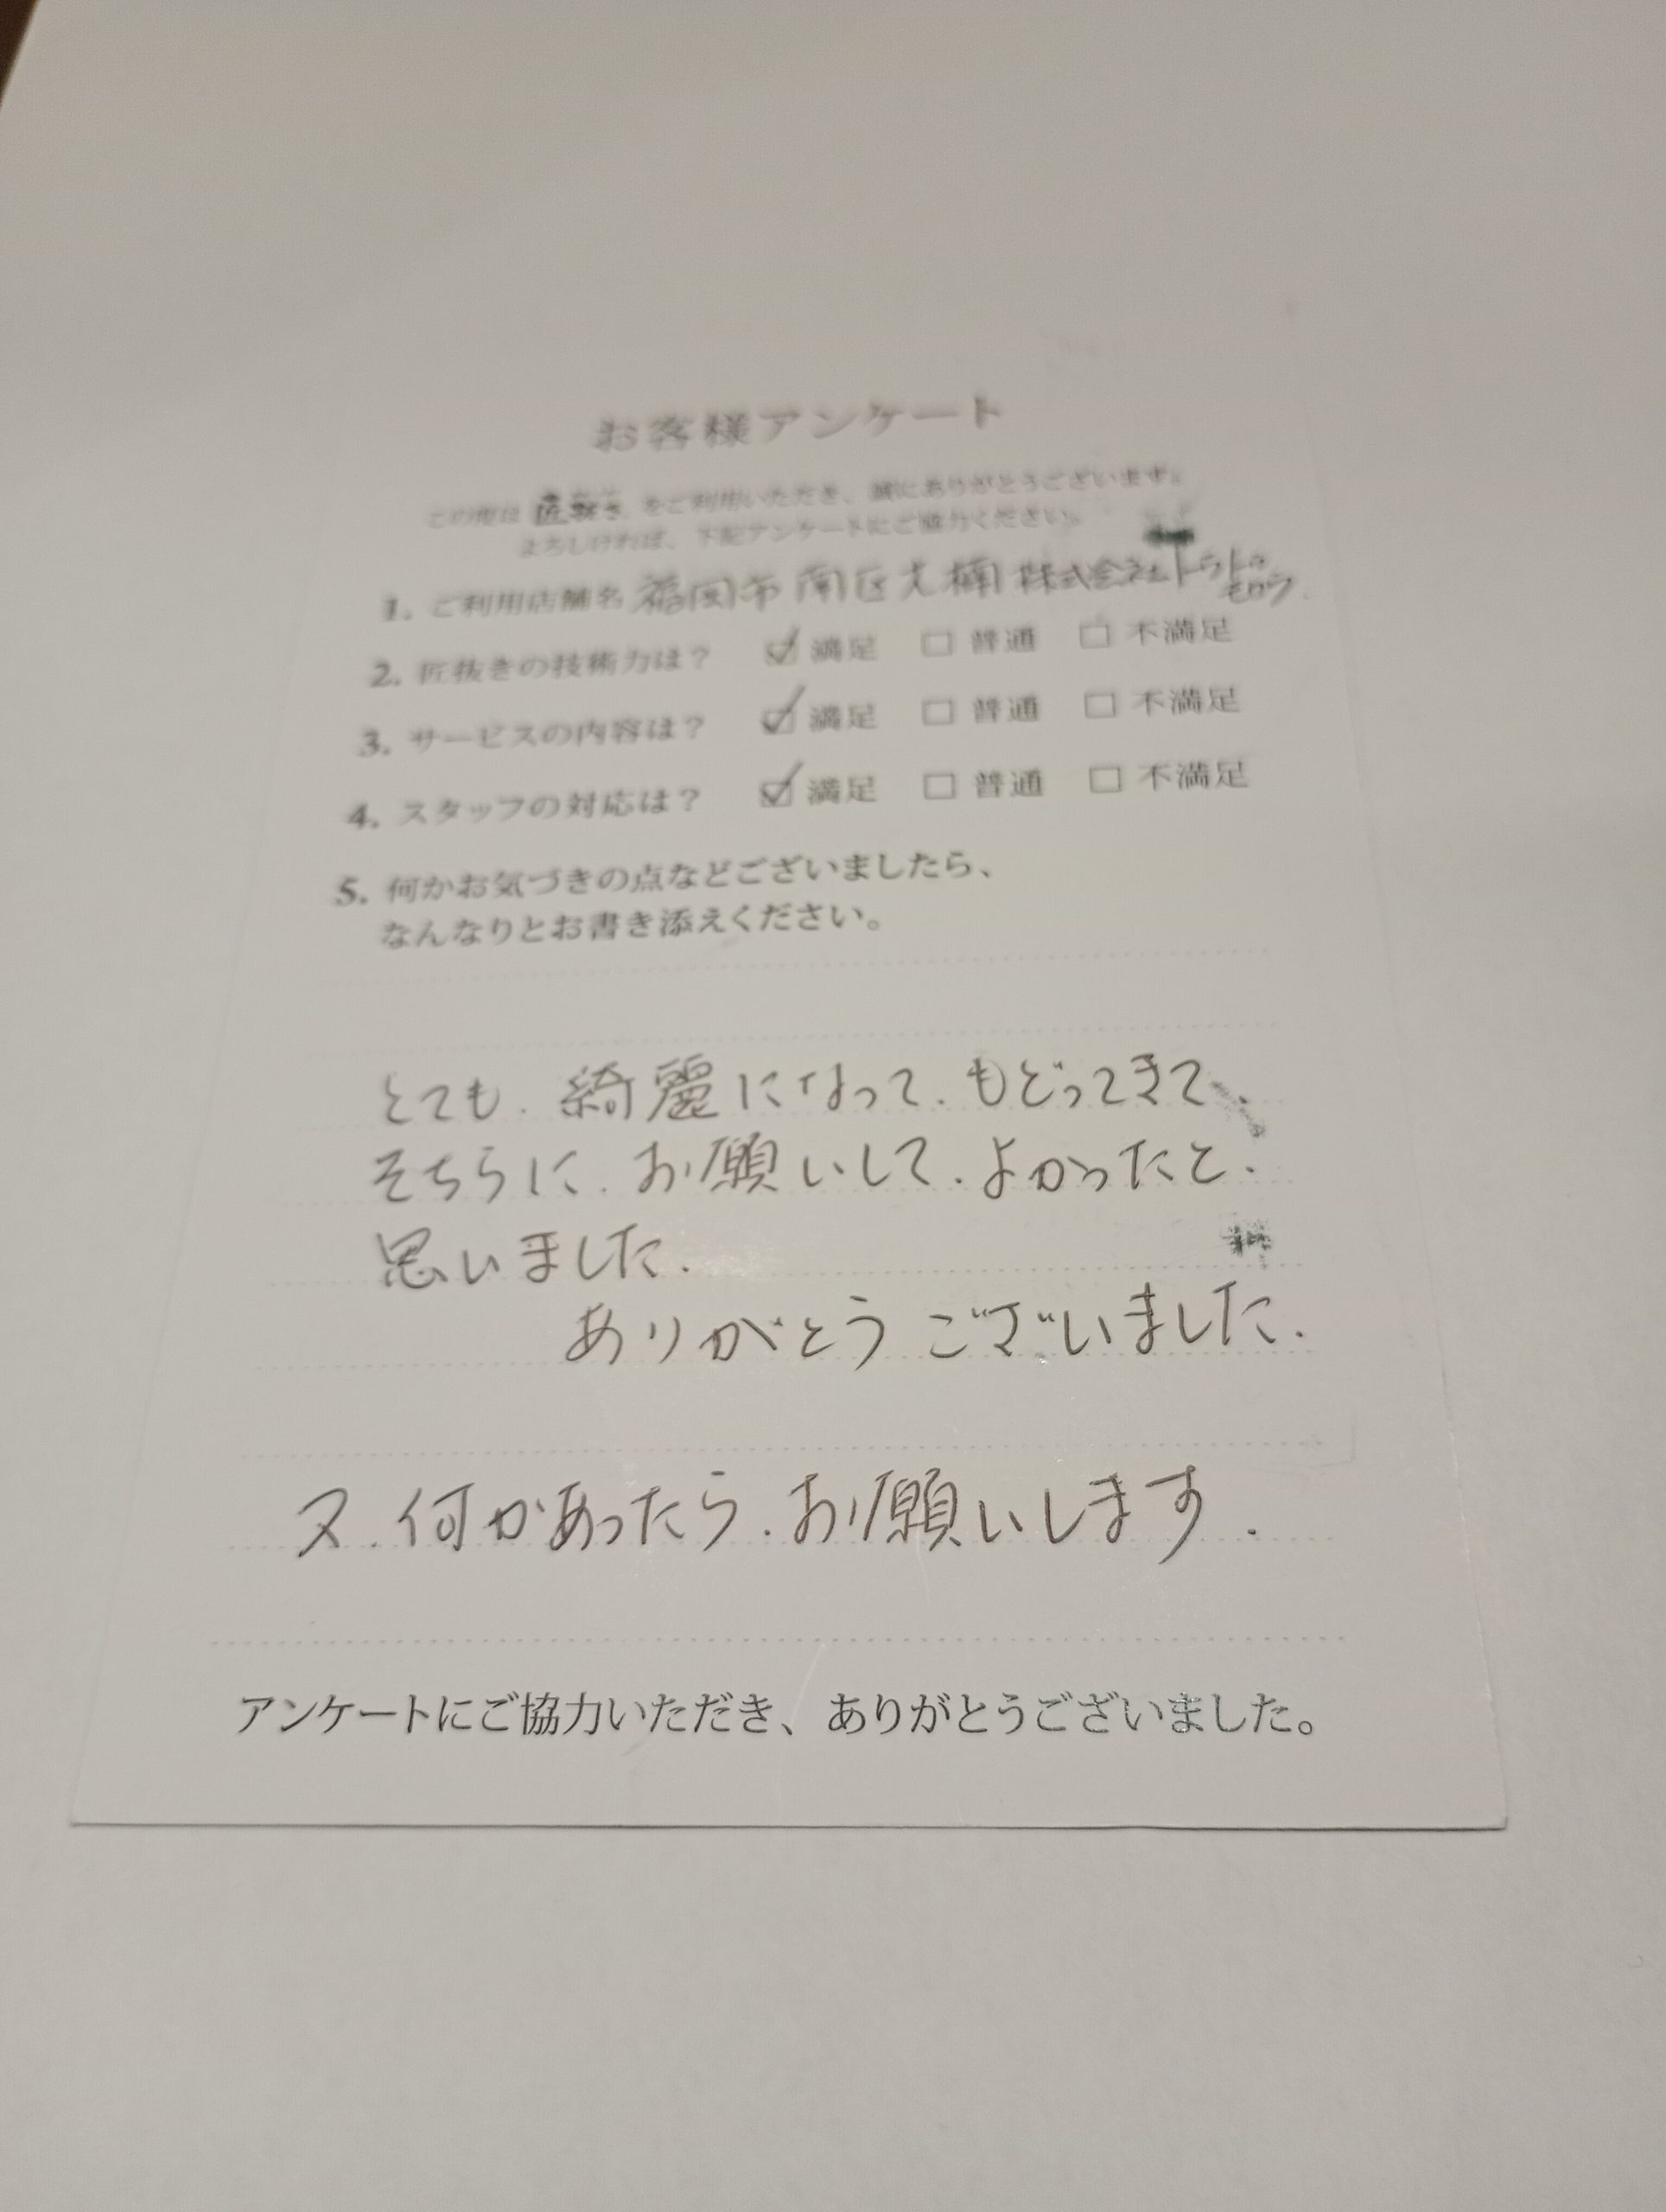 お客様アンケート
この度は 匠抜き をご利用いただき、誠にありがとうございます。
よろしければ、下記アンケートにご協力ください。
1. ご利用店舗名 福岡市 南区大楠 株式会社
2. 匠抜きの技術力は? ☑ 満足 □ 普通 □ 不満足
3. サービスの内容は? ☑ 満足 □ 普通 □ 不満足
4. スタッフの対応は? ☑ 満足 □ 普通 □ 不満足
5. 何かお気づきの点などございましたら、
なんなりとお書き添えください。
とても. 綺麗になって. もどってきて、
そちらに. お願いして. よかったと.
思いました.
ありがとうございました.
又. 何かあったら. お願いします.
アンケートにご協力いただき、ありがとうございました。